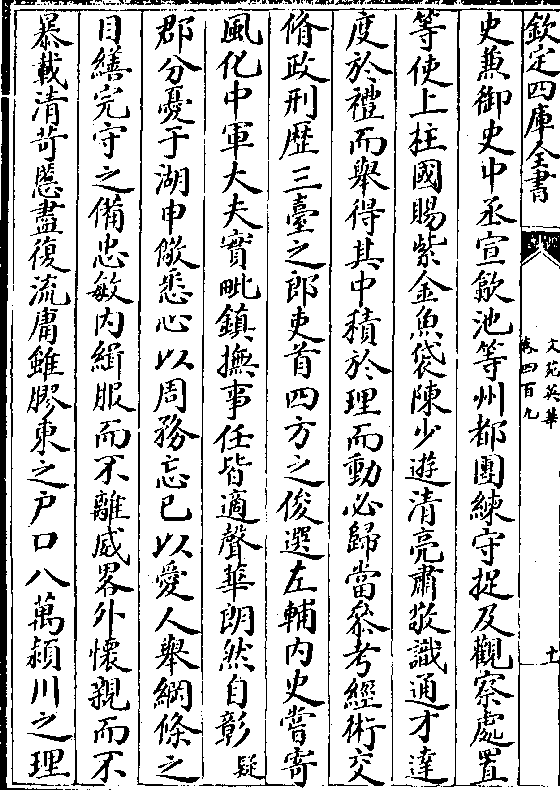 欽定四庫全書
文苑英華
卷四百九
十
史兼御史中丞宣歙池等州都團練守捉及觀察處置
等使上柱國賜紫金魚袋陳少遊清亮肅敬識通才達
度於禮而舉得其中積於理而動必歸當叅考經術交
脩政刑歴三臺之郎吏首四方之俊選左輔内史嘗寄
風化中軍大夫實毗鎮撫事任皆適聲華朗然自彰疑
郡分憂于湖申儆悉心以周務忘已以愛人舉綱條之
目繕完守之備忠敏内緝服而不離威畧外懐親而不
暴載清苛慝盡復流庸雖膠東之户口八萬潁川之理